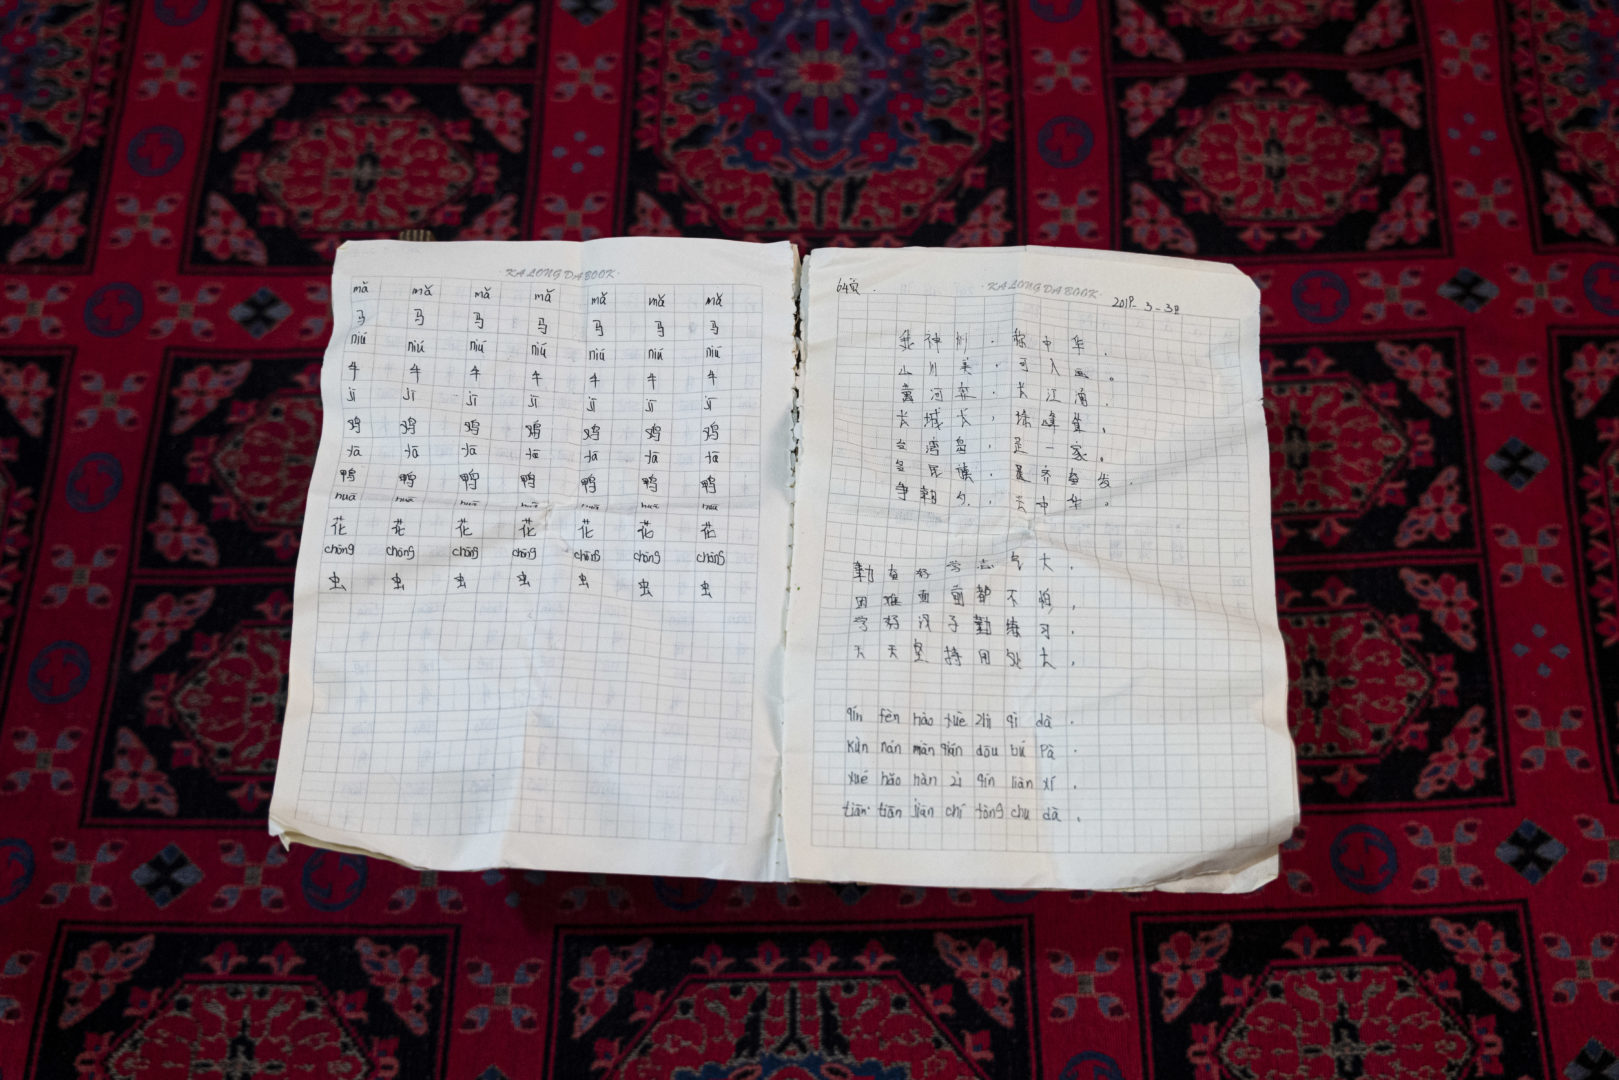 KALONGDABOOK
mǎ mǎ mǎ mǎ mǎ mǎ mǎ
马 马 马 马 马 马 马
niú niú niú niú niú niú niú
牛 牛 牛 牛 牛 牛 牛
jī jī jī jī jī jī jī
鸡 鸡 鸡 鸡 鸡 鸡 鸡
yā yā yā yā yā yā yā
鸭 鸭 鸭 鸭 鸭 鸭 鸭
huā huā huā huā huā huā huā
花 花 花 花 花 花 花
chóng chóng chóng chóng chóng chóng chóng
虫 虫 虫 虫 虫 虫 虫
64页.
KALONGDABOOK
我 神 州 , 称 中 华 .
山 川 美 , 可 入 画 。
黄 河 奔 , 长 江 涌 ,
长 城 长 , 珠 峰 ,
台 湾 岛 , 是 一 家 。
民 族 , 齐 奋 发 .
争 朝 夕 , 中 华 。
勤 奋 好 学 志 气 大 .
困 难 面 前 都 不 怕 ,
学 好 汉 子 勤 练 习 .
天 天 坚 持 用 处 大 .
qín fèn hào xué zhì qì dà .
kùn nán màn qián dōu bú Pà .
xué hǎo hàn zì qín liàn xí .
tiān tiān jiān chí tòng chu dà .